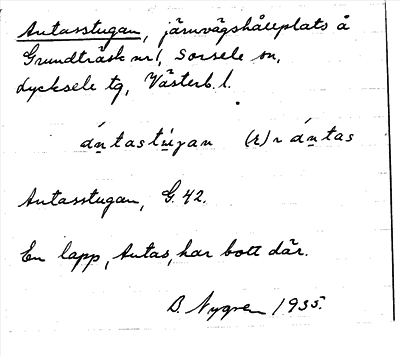 Antasstugan, järnvägshållplats å
Grundträsk nr 1, Sorsele sn,
Lycksele tg, Västerb. l.
ántastùgan (r) n ántas
Antasstugan, G. 42.
En lapp, Antas, har bott där.
B. Nygren 1935.